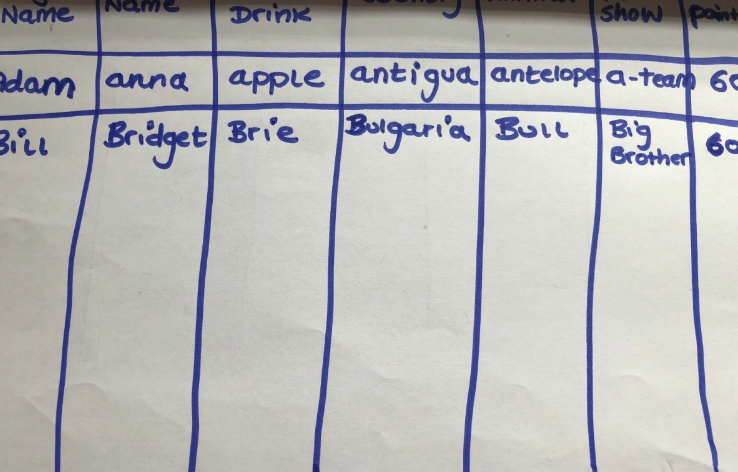 Name Name Drink show
anna apple antigua antelope a-team 60
Bill Bridget Brie Bulgaria Bull Big Brother 60